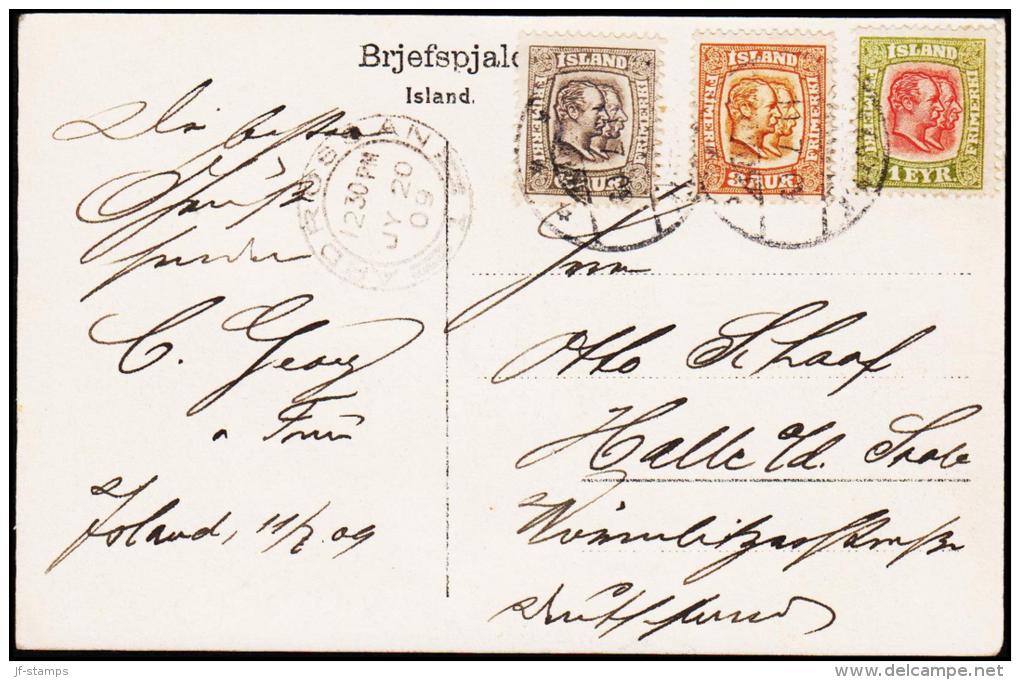 Brjefspjald
Island.
ÍSLAND
FRÍMERKI
ÍSLAND
FRÍMERKI
3 AUR.
ÍSLAND
FRÍMERKI
1 EYR.
ARDROSSAN
12 30 PM
JY 20
09
Die besten
Grüße
senden
C. Georg
u. Frau
Island, 11/7. 09
Herrn
Otto Schaaf
Halle a/d. Saale
Wörmlitzerstraße
Deutschland
jf-stamps
www.delcampe.net